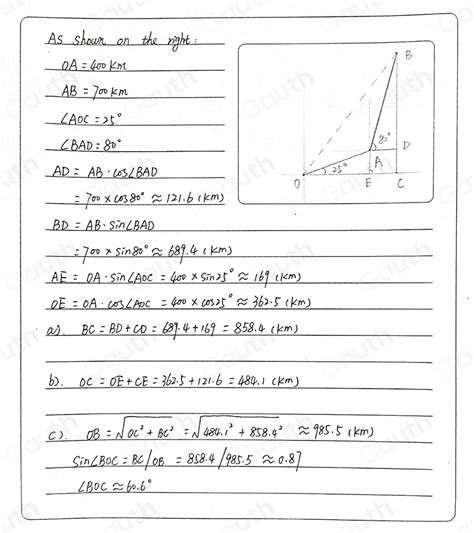 As shown on the right:
OA = 400 km
AB = 700 km
∠AOC = 25°
∠BAD = 80°
AD = AB · cos∠BAD
= 700 × cos80° ≈ 121.6 (km)
BD = AB · sin∠BAD
= 700 × sin80° ≈ 689.4 (km)
AE = OA · sin∠AOC = 400 × sin25° ≈ 169 (km)
OE = OA · cos∠AOC = 400 × cos25° ≈ 362.5 (km)
a). BC = BD + CD = 689.4 + 169 = 858.4 (km)
b). OC = OE + CE = 362.5 + 121.6 = 484.1 (km)
c). OB = √OC² + BC² = √484.1² + 858.4² ≈ 985.5 (km)
sin∠BOC = BC/OB = 858.4/985.5 ≈ 0.87
∠BOC ≈ 60.6°
B
80°
D
A
25°
O
E
C
Gauth